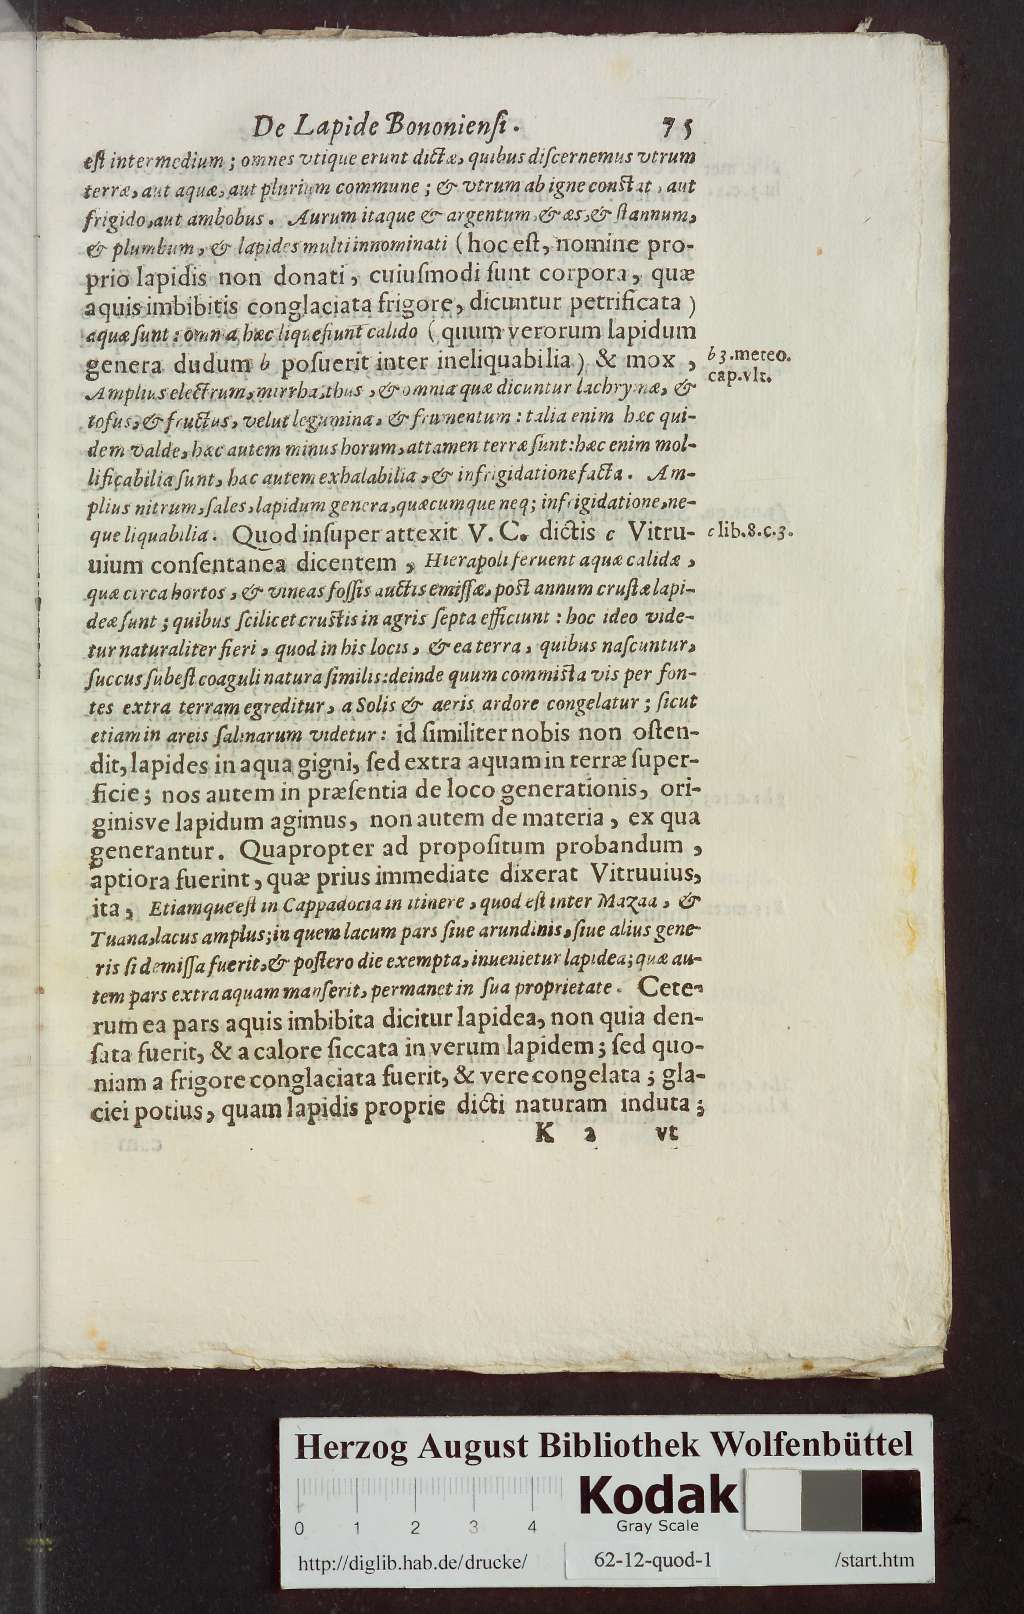 De Lapide Bononienſi. 75
eſt intermedium; omnes vtique erunt dictæ, quibus diſcernemus vtrum
terræ, aut aquæ, aut plurium commune; & vtrum ab igne conſtat, aut
frigido, aut ambobus. Aurum itaque & argentum, & æs, & ſtannum,
& plumbum, & lapides multi innominati (hoc eſt, nomine pro-
prio lapidis non donati, cuiuſmodi ſunt corpora, quæ
aquis imbibitis conglaciata frigore, dicuntur petrificata)
aquæ ſunt: omnia hæc liquefiunt calido (quum verorum lapidum
genera dudum b poſuerit inter ineliquabilia) & mox,
b 3. meteo.
cap. vlt.
Amplius electrum, mirrha, thus, & omnia quæ dicuntur lachrymæ, &
tofus, & fructus, velut legumina, & frumentum: talia enim hæc qui-
dem valde, hæc autem minus horum, attamen terræ ſunt: hæc enim mol-
lificabilia ſunt, hæc autem exhalabilia, & infrigidatione facta. Am-
plius nitrum, ſales, lapidum genera, quæcumque neq; infrigidatione, ne-
que liquabilia. Quod inſuper attexit V. C. dictis c Vitru-
c lib. 8. c. 3.
uium conſentanea dicentem, Hierapoli feruent aquæ calidæ,
quæ circa hortos, & vineas foſſis auctis emiſſæ, poſt annum cruſtæ lapi-
deæ ſunt; quibus ſcilicet cruſtis in agris ſepta efficiunt: hoc ideo vide-
tur naturaliter fieri, quod in his locis, & ea terra, quibus naſcuntur,
ſuccus ſubeſt coaguli natura ſimilis: deinde quum commiſta vis per fon-
tes extra terram egreditur, a Solis & aeris ardore congelatur; ſicut
etiam in areis ſalinarum videtur: id ſimiliter nobis non oſten-
dit, lapides in aqua gigni, ſed extra aquam in terræ ſuper-
ficie; nos autem in præſentia de loco generationis, ori-
ginisve lapidum agimus, non autem de materia, ex qua
generantur. Quapropter ad propoſitum probandum,
aptiora fuerint, quæ prius immediate dixerat Vitruuius,
ita, Etiamque eſt in Cappadocia in itinere, quod eſt inter Mazaa, &
Tuana, lacus amplus; in quem lacum pars ſiue arundinis, ſiue alius gene-
ris ſi demiſſa fuerit, & poſtero die exempta, inuenietur lapidea; quæ au-
tem pars extra aquam manſerit, permanet in ſua proprietate. Cete-
rum ea pars aquis imbibita dicitur lapidea, non quia den-
ſata fuerit, & a calore ſiccata in verum lapidem; ſed quo-
niam a frigore conglaciata fuerit, & vere congelata; gla-
ciei potius, quam lapidis proprie dicti naturam induta;
K 2 vt
Herzog August Bibliothek Wolfenbüttel
0 1 2 3 4
Kodak
Gray Scale
http://diglib.hab.de/drucke/ 62-12-quod-1 /start.htm